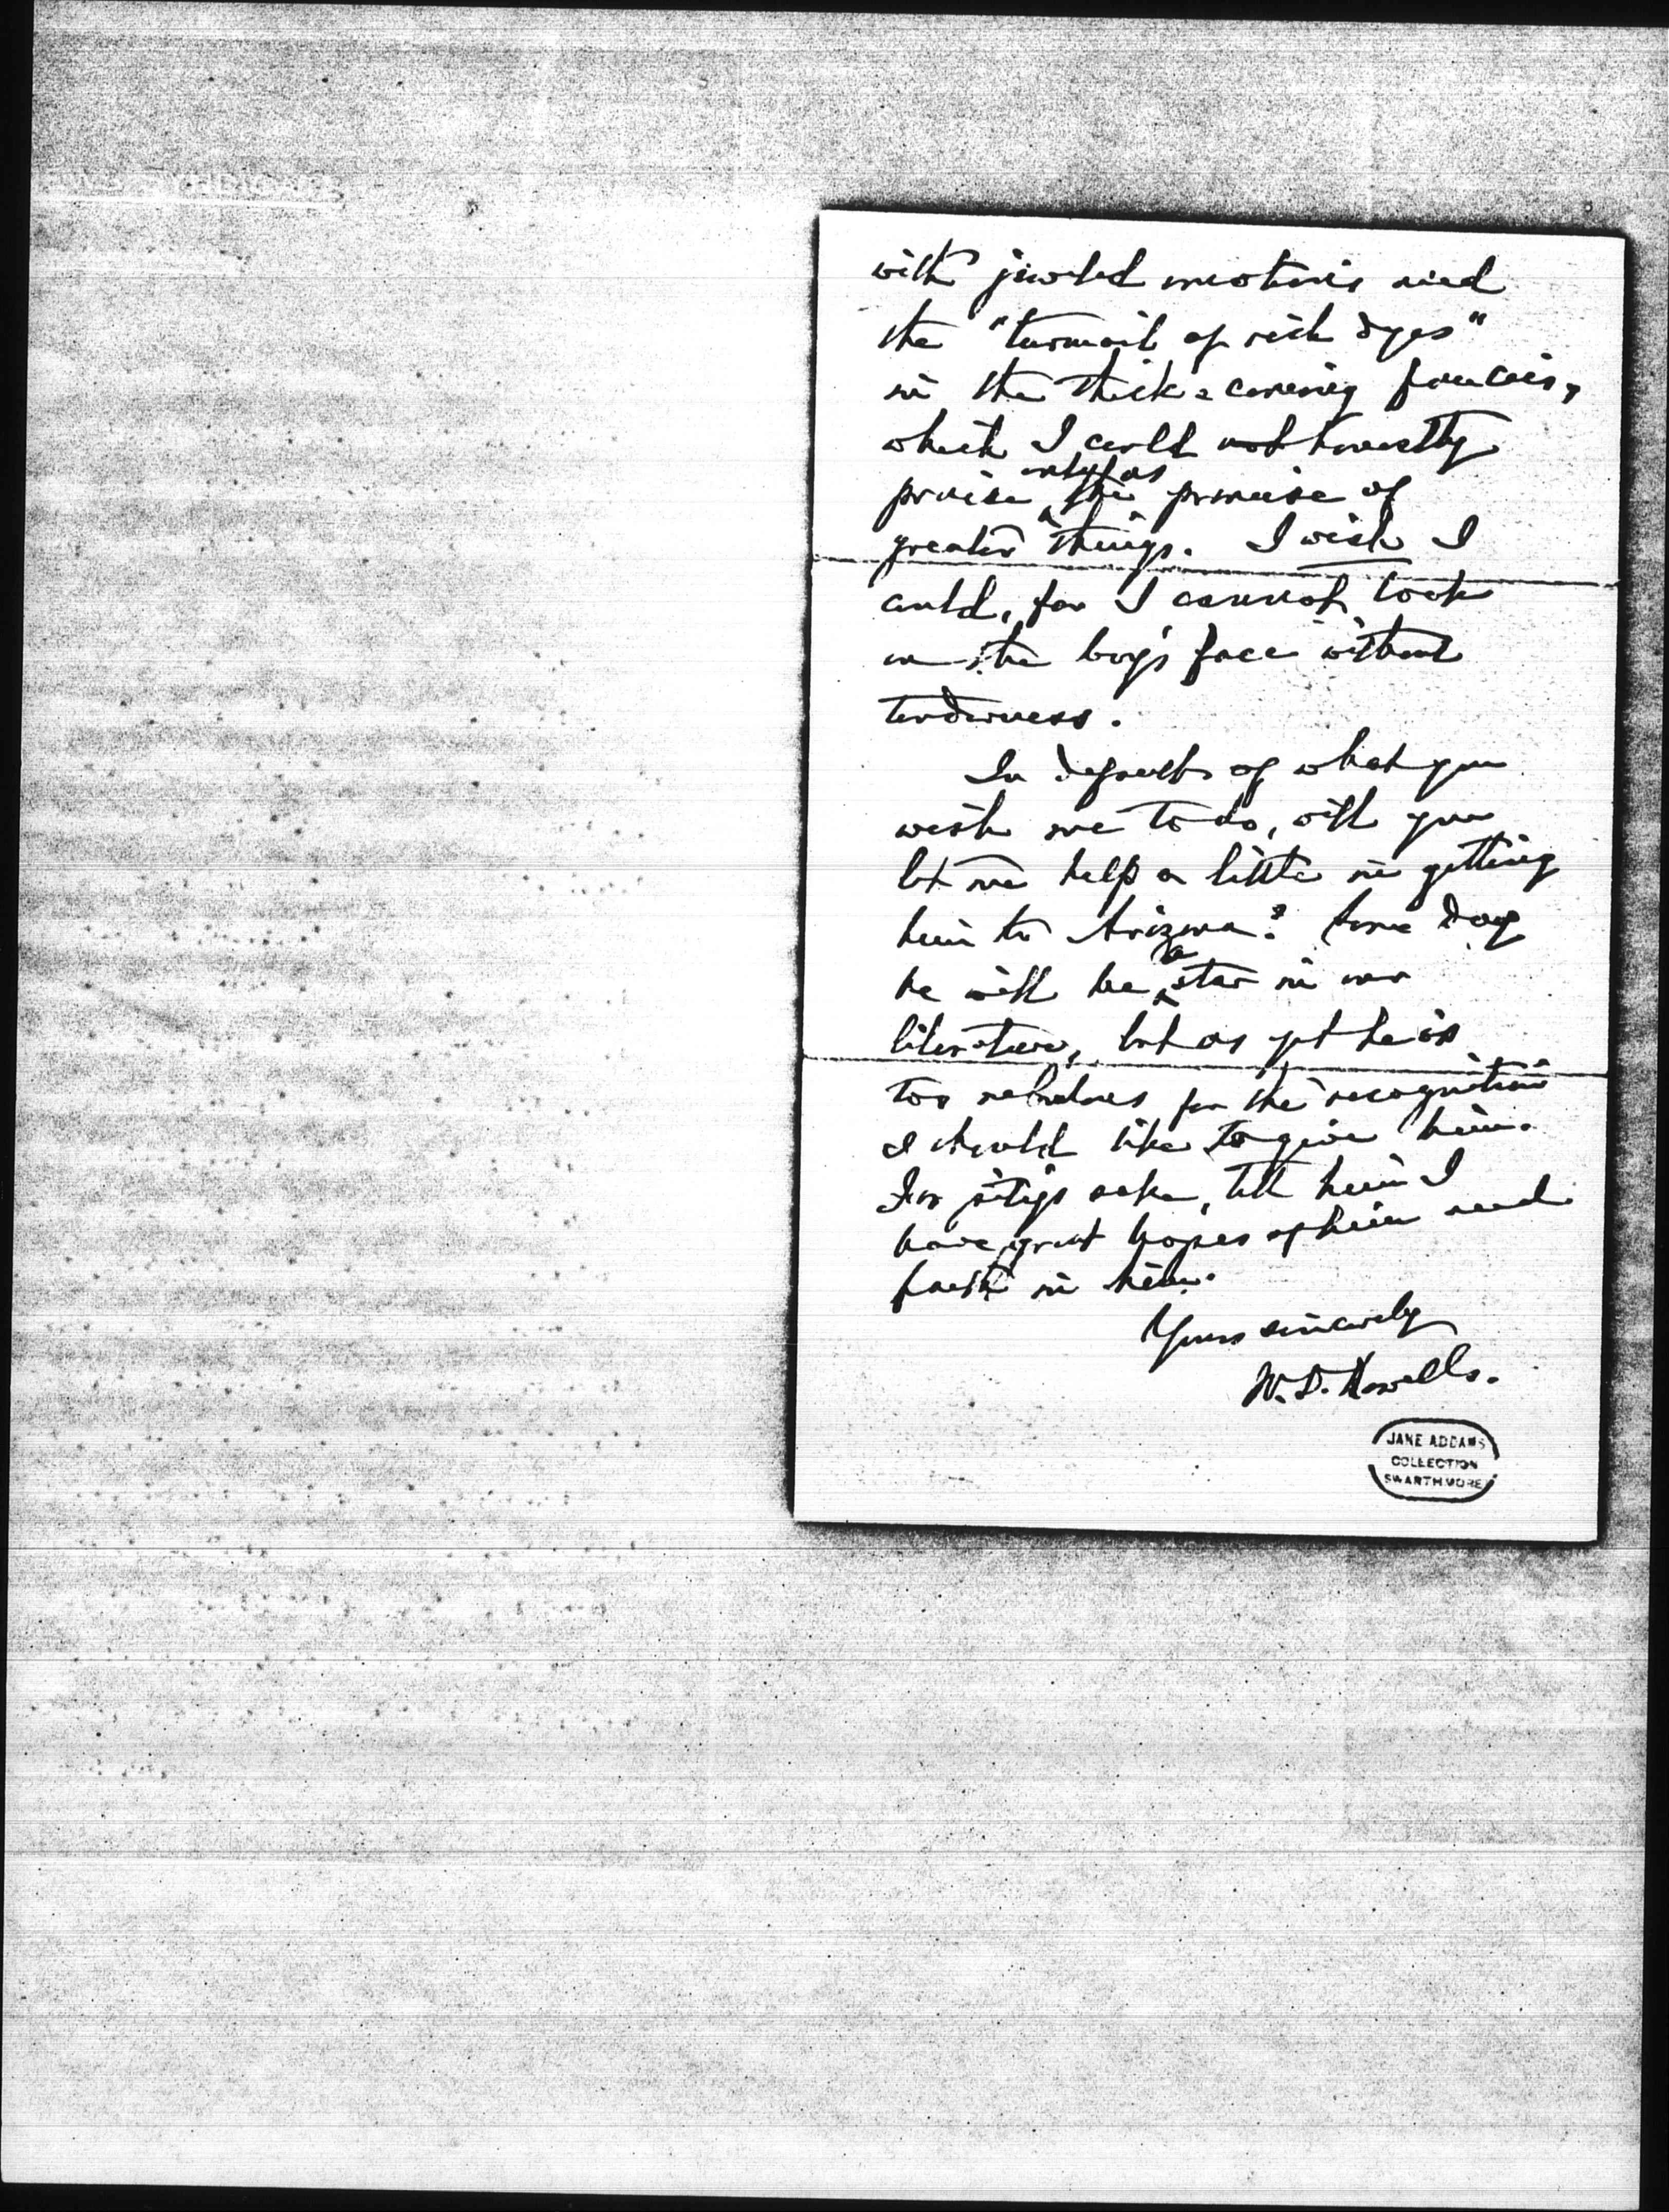 with jeweled
the "turmoil of rich dyes"
in the thick-coming fancies,
which I could not honestly
only as
praise the promise of
greater things. I wish I
could, for I cannot look
on the boy's face without
tenderness.
In default of what you
wish me to do, will you
let me help a little in getting
him to Arizona? Some day
a
he will be star in our
literature, but as yet he is
too nebulous for the recognition
I should like to give him.
For pity's sake, tell him I
have great hopes of him and
faith in him.
Yours sincerely
W. D. Howells.
JANE ADDAMS
COLLECTION
SWARTHMORE